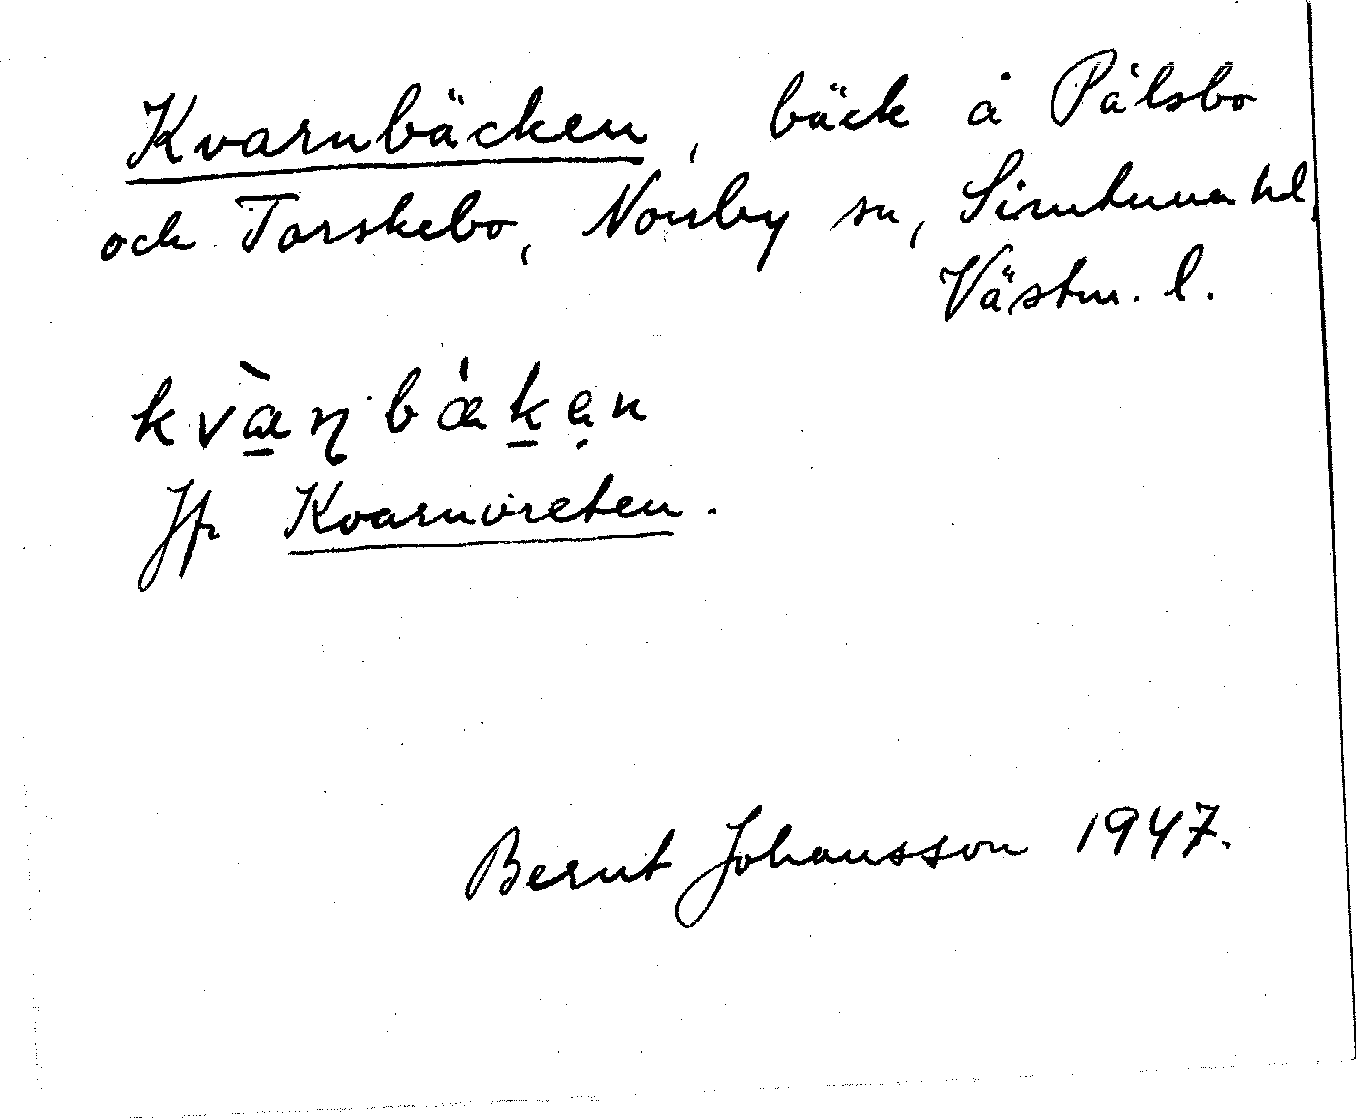 Kvarnbäcken, bäck å Pålsbo
och Torskebo, Nonby sn, Simtuna hd,
Västm. l.
kvæ̀ɳbækən
Jfr Kvarnvreten.
Bernt Johansson 1947.